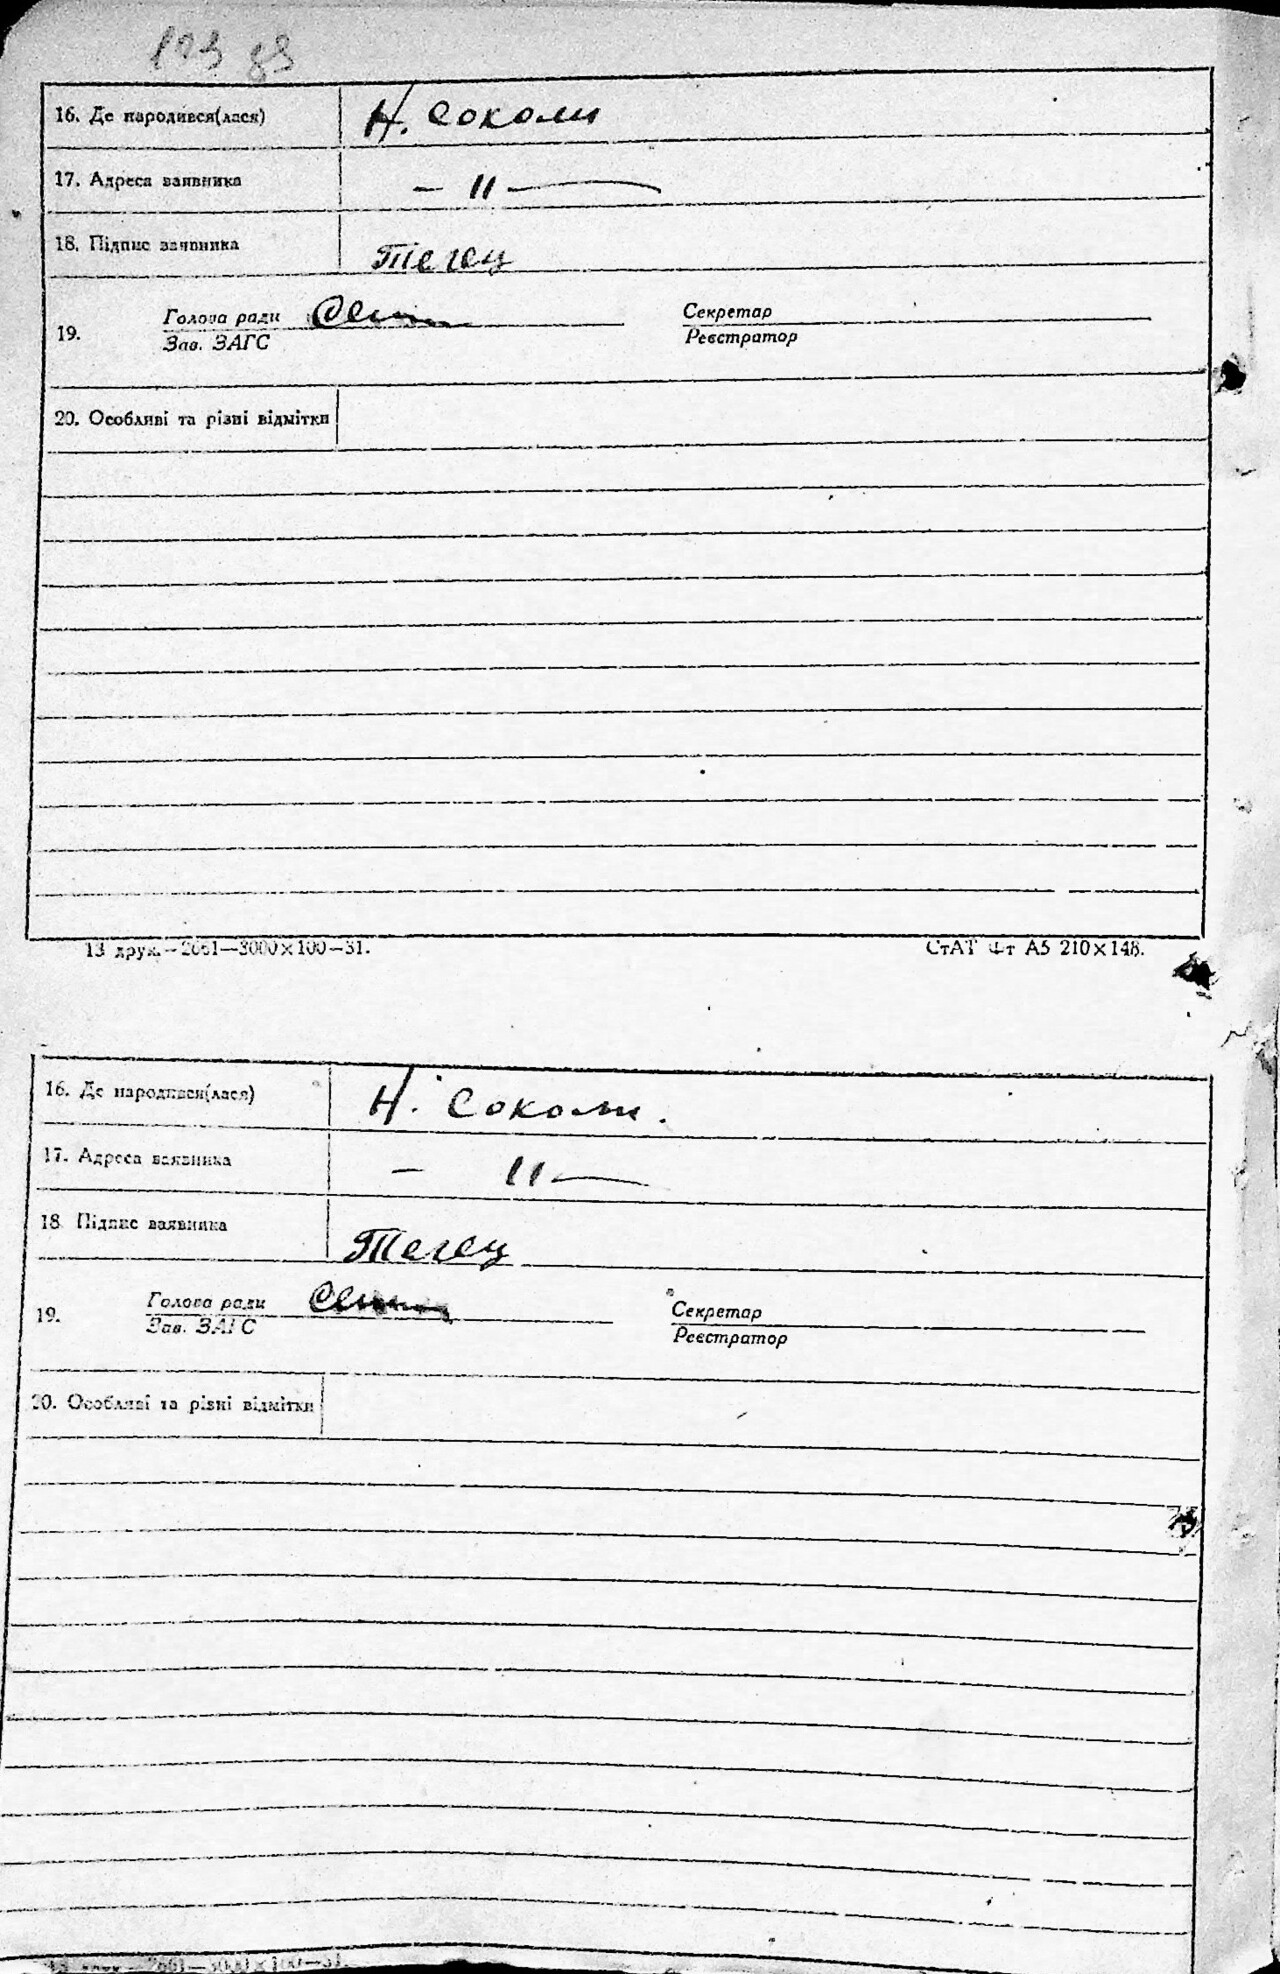 123 зв
16. Де народився(лася) Н. Соколи
17. Адреса заявника — 〃 —
18. Підпис заявника Тегец
Голова ради Секретар
19.
Зав. ЗАГС Реєстратор
20. Особливі та різні відмітки
13 друк.—2661—3000×100—31. СтАТ Фт А5 210×148.
16. Де народився(лася) Н. Соколи.
17. Адреса заявника — 〃 —
18 Підпис заявника Тегец
Голова ради Секретар
19.
Зав. ЗАГС Реєстратор
20. Особливі та різні відмітки
13 друк.—2661—3000×100—31.